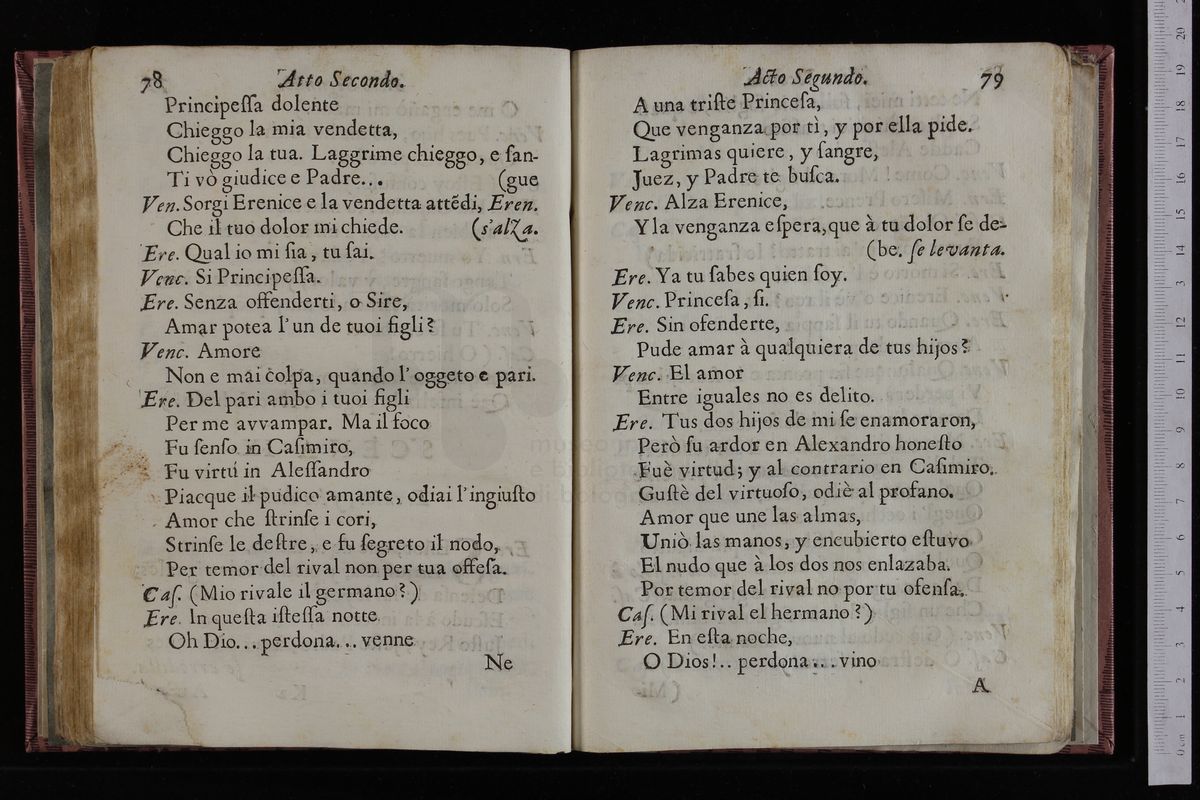 78 Atto Secondo.
Principeſſa dolente
Chieggo la mia vendetta,
Chieggo la tua. Laggrime chieggo, e ſan-
Ti vò giudice e Padre... (gue
Ven. Sorgi Erenice e la vendetta attẽdi, Eren.
Che il tuo dolor mi chiede. (s'alza.
Ere. Qual io mi ſia, tu ſai.
Venc. Si Principeſſa.
Ere. Senza offenderti, o Sire,
Amar potea l'un de tuoi figli?
Venc. Amore
Non e mai colpa, quando l' oggeto e pari.
Ere. Del pari ambo i tuoi figli
Per me avvampar. Ma il foco
Fu ſenſo in Caſimiro,
Fu virtú in Aleſſandro
Piacque il pudico amante, odiai l'ingiuſto
Amor che ſtrinſe i cori,
Strinſe le deſtre, e fu ſegreto il nodo,
Per temor del rival non per tua offeſa.
Caſ. (Mio rivale il germano?)
Ere. In queſta iſteſſa notte
Oh Dio... perdona... venne
Ne
Acto Segundo. 79
A una triſte Princeſa,
Que venganza por tì, y por ella pide.
Lagrimas quiere, y ſangre,
Juez, y Padre te buſca.
Venc. Alza Erenice,
Y la venganza eſpera, que à tu dolor ſe de-
(be. ſe levanta.
Ere. Ya tu ſabes quien ſoy.
Venc. Princeſa, ſi.
Ere. Sin ofenderte,
Pude amar à qualquiera de tus hijos?
Venc. El amor
Entre iguales no es delito.
Ere. Tus dos hijos de mi ſe enamoraron,
Però ſu ardor en Alexandro honeſto
Fuè virtud; y al contrario en Caſimiro.
Guſtè del virtuoſo, odiè al profano.
Amor que une las almas,
Uniò las manos, y encubierto eſtuvo
El nudo que à los dos nos enlazaba.
Por temor del rival no por tu ofenſa.
Caſ. (Mi rival el hermano?)
Ere. En eſta noche,
O Dios!.. perdona... vino
A